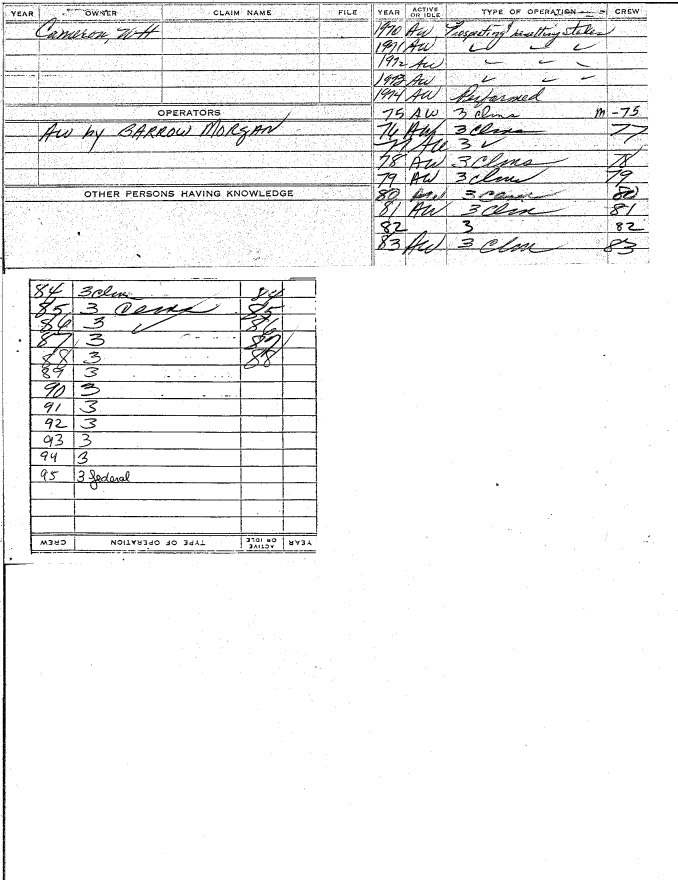 YEAR OWNER CLAIM NAME FILE
Cameron, WH
OPERATORS
AW by BARROW MORGAN
OTHER PERSONS HAVING KNOWLEDGE
YEAR ACTIVE OR IDLE TYPE OF OPERATION CREW
1970 AW Prospecting resetting stakes
1971 AW ✓ ✓ ✓
1972 AW ✓ ✓ ✓
1973 AW ✓ ✓ ✓
1974 AW Performed
75 AW 3 clms m -75
76 AW 3 clms 77
77 AW 3 ✓
78 AW 3 Clms 78
79 AW 3 clms 79
80 3 80
81 AW 3 Clm 81
82 3 82
83 AW 3 Clm 83
84 3 clm 84
85 3 85
86 3 ✓ 86
87 3 87
88 3 88
89 3
90 3
91 3
92 3
93 3
94 3
95 3 federal
CREW TYPE OF OPERATION ACTIVE OR IDLE YEAR